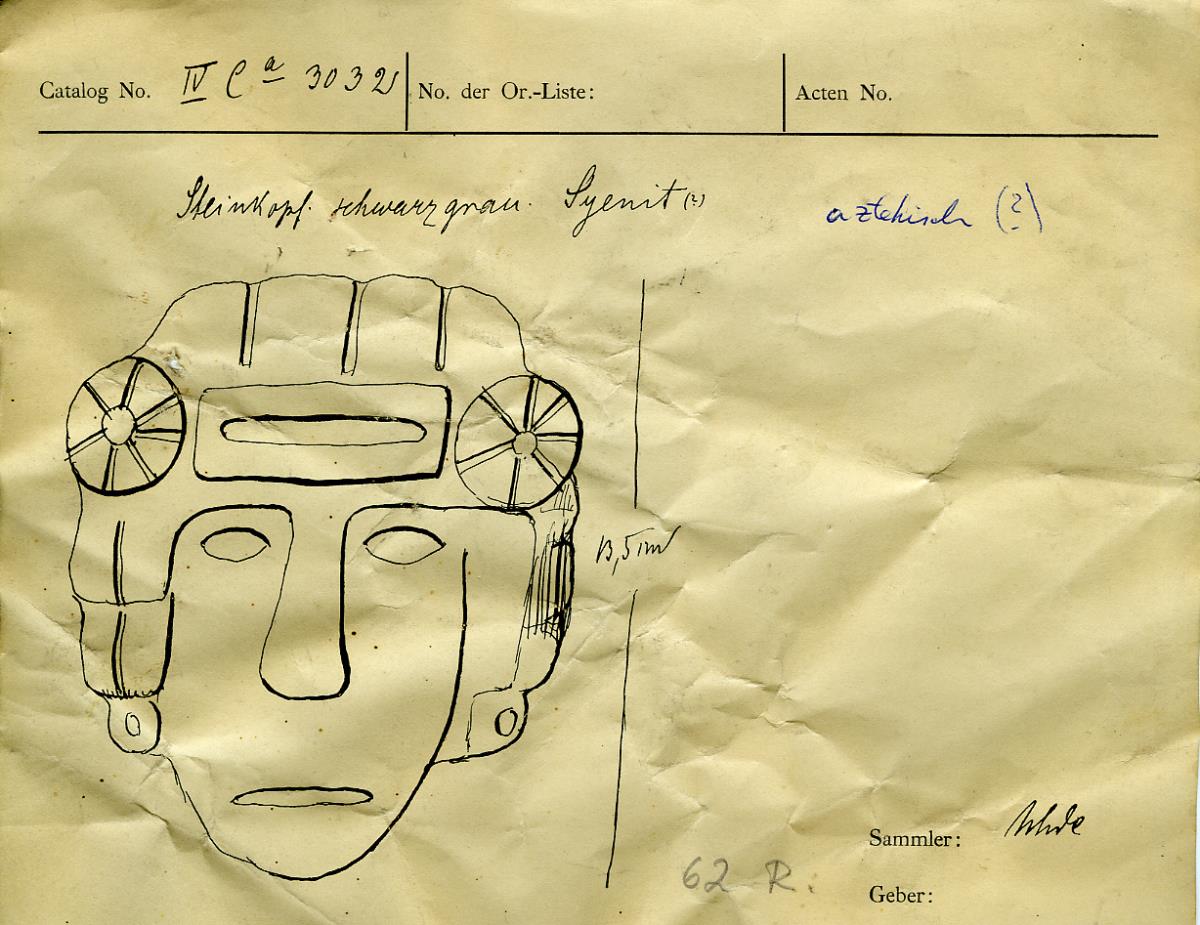 Catalog No. IV Ca 3032 No. der Or.-Liste: Acten No.
Steinkopf. schwarzgrau. Syenit (?) aztekisch (?)
13,5 cm
Sammler: Uhde
62 R.
Geber: